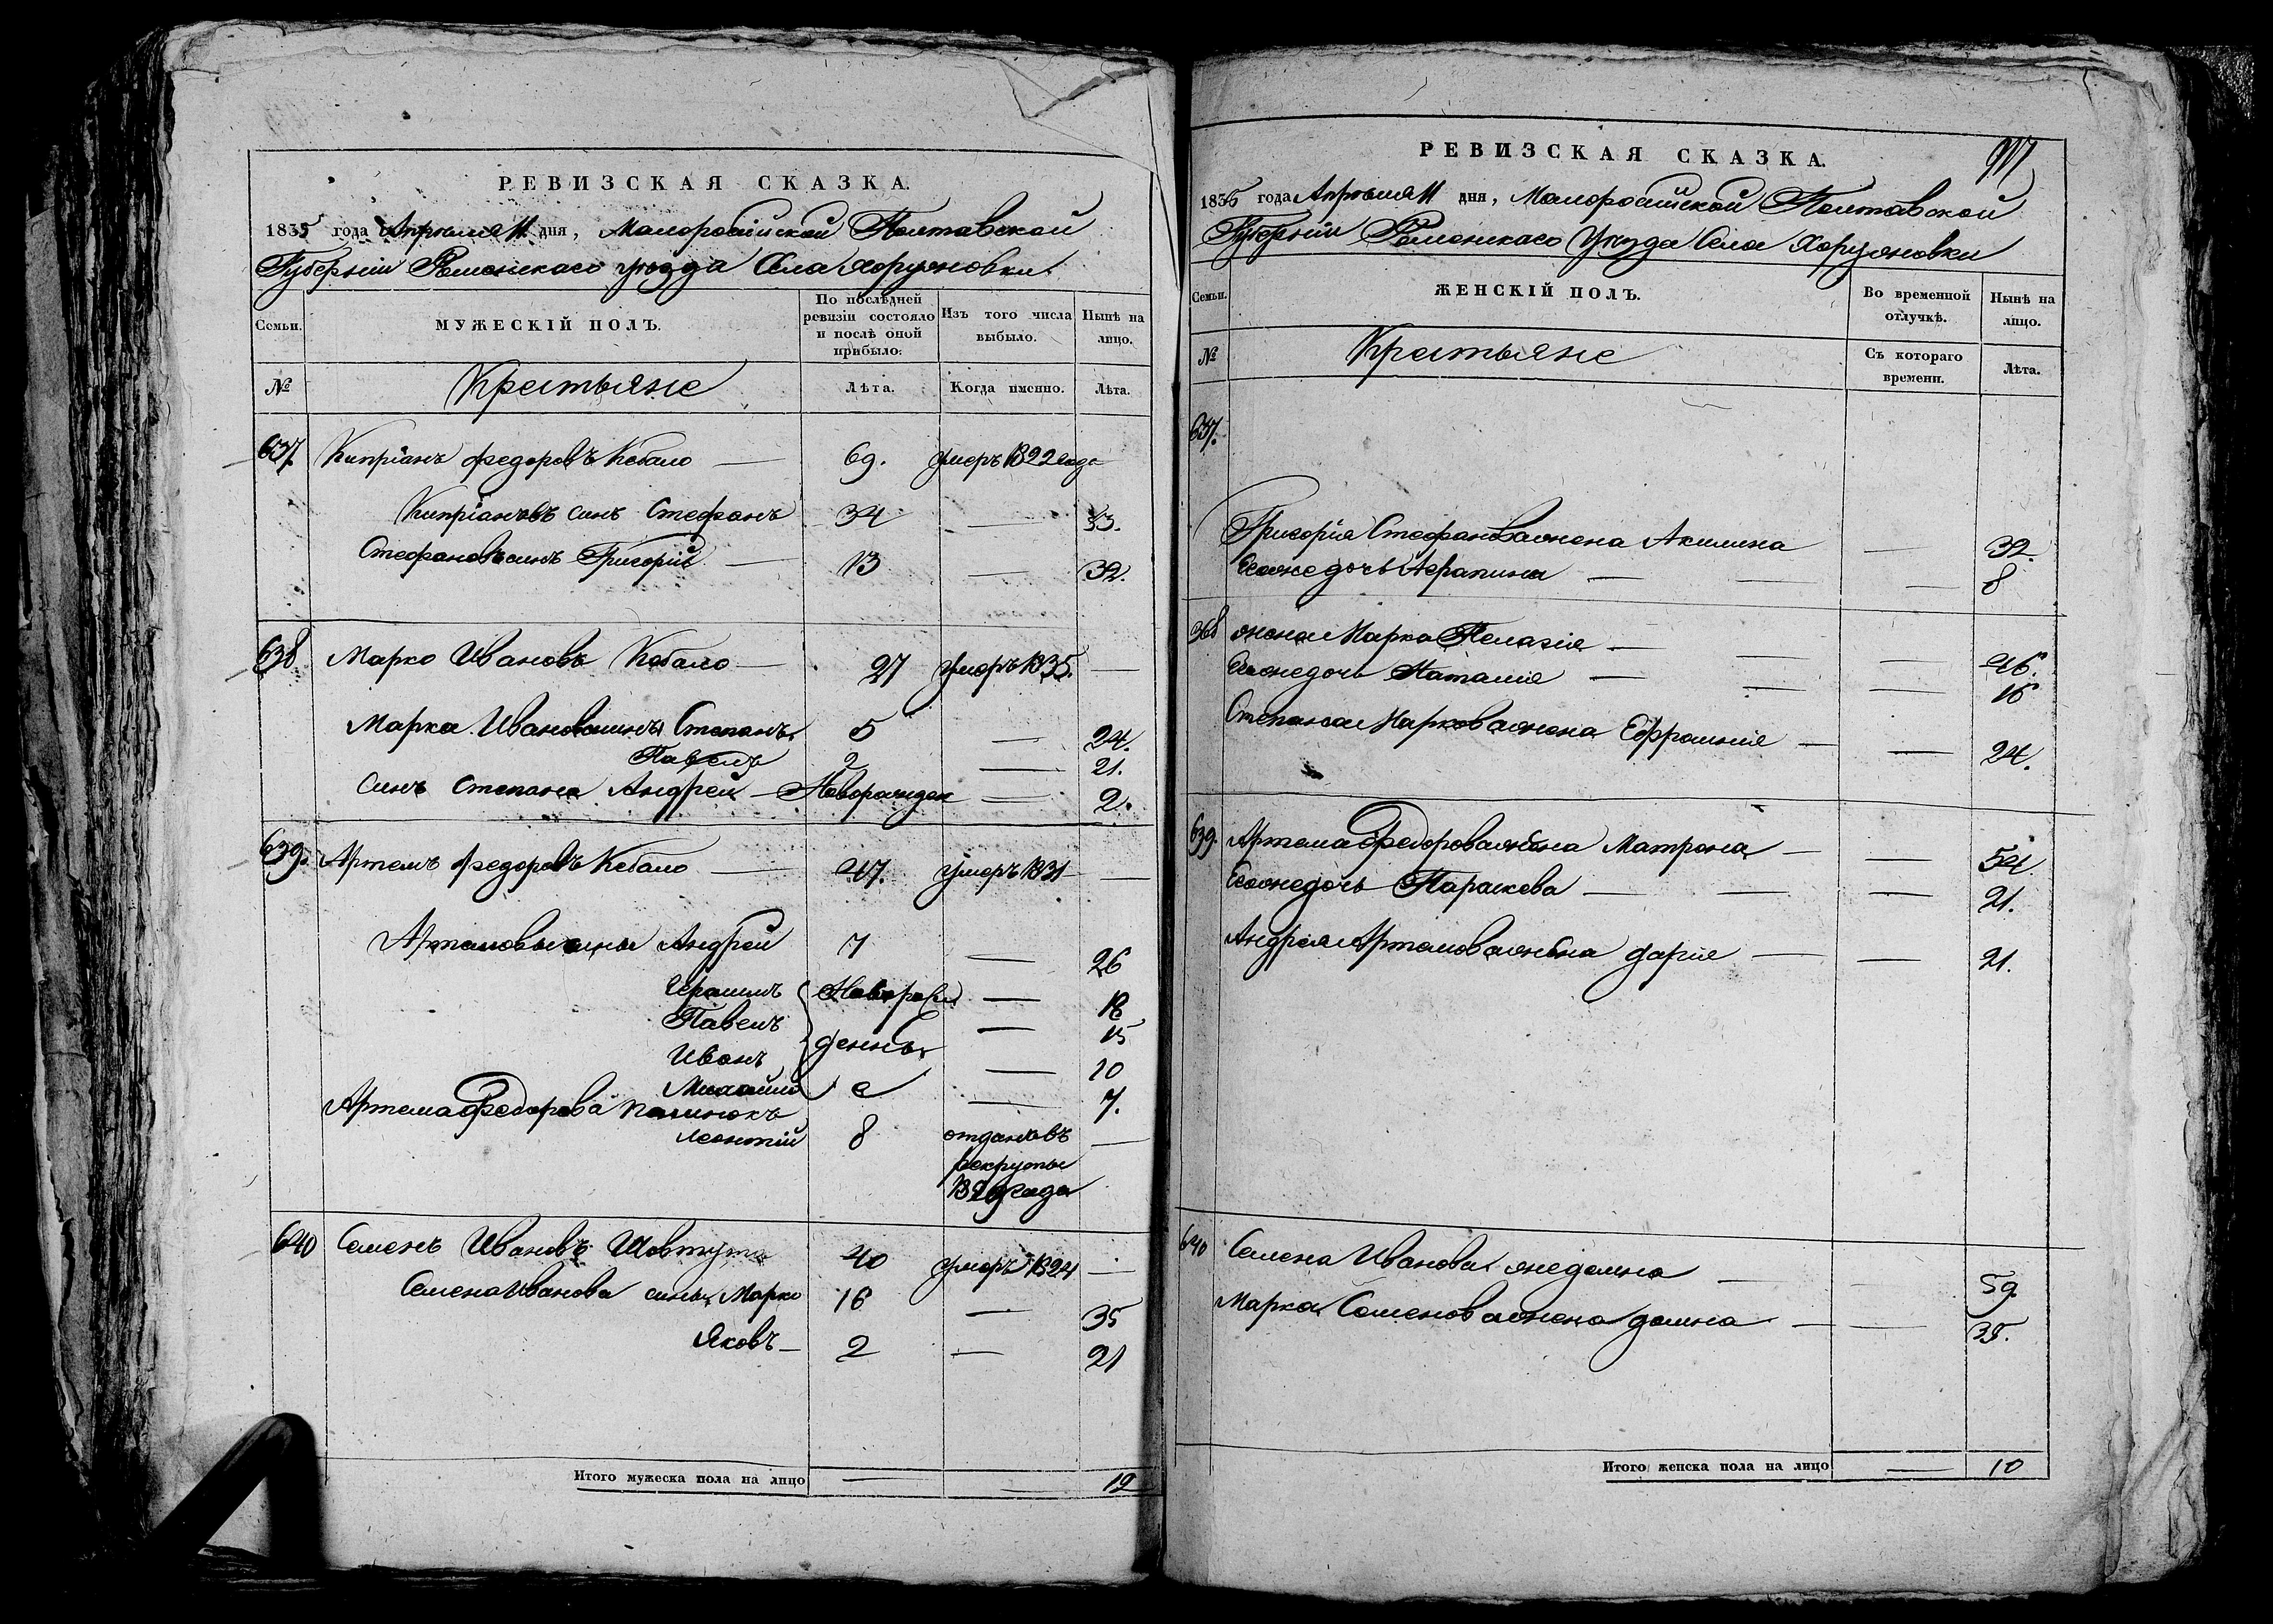 РЕВИЗСКАЯ СКАЗКА.
1835 года Апрѣля 11 дня, Малоросійской Полтавской
Губерніи Роменскаго уѣзда Села Хоружовки
Семьи. МУЖЕСКІЙ ПОЛЪ. По послѣдней ревизіи состояло и послѣ оной прибыло: Изъ того числа выбыло. Нынѣ на лицо.
№ Крестьяне Лѣта. Когда именно. Лѣта.
637. Кипріанъ Федоровъ Кобало — 69. умеръ 1822 года
Кипріановъ синъ Стефанъ 34 — 53.
Стефановъ синъ Григорій — 13 — 32.
638 Марко Ивановъ Кобало — 27 умеръ 1835. —
Марка Иванова сины Степанъ 5 — 24.
Павелъ 2 — 21.
Синъ Степана Андрей — Новорожден — 2.
639. Артемъ Федоровъ Кобало — 47. умеръ 1831 —
Артемовы сины Андрей 7 — 26
Новорож — 18
Павелъ — 15
Иванъ денны — 10
Михайло е — 7.
Артема Федорова
Леонтій 8 отданъ въ —
рекруты
1829 года
640 Семенъ Ивановъ Шовтута 40 умеръ 1824 —
Семена Иванова сины Марко 16 — 35
Яковъ — 2 — 21
Итого мужеска пола на лицо — — 12
РЕВИЗСКАЯ СКАЗКА.
1835 года Апрѣля 11 дня, Малоросійской Полтавской
Губерніи Роменскаго Уѣзда Села Хоружовки
Семьи. ЖЕНСКІЙ ПОЛЪ. Во временной отлучкѣ. Нынѣ на лицо.
№ Крестьяне Съ котораго времени. Лѣта.
637.
Григорія Стефанова жена Акилина — 32
Егоже дочь — — — 8
368 жена Марка Пелагія — — — 46.
Егоже дочь Наталія — — — 16
Степана Маркова жена Ефросинія — — 24.
639. Артема Федорова жена Матрона — — 54
Егоже дочь Параскева — — — 21.
Андрея Артемова жена Дарія — — 21.
640 Семена Иванова жена Домна — — 59.
Марка Семенова жена Домна — — 35.
Итого женска пола на лицо — 10